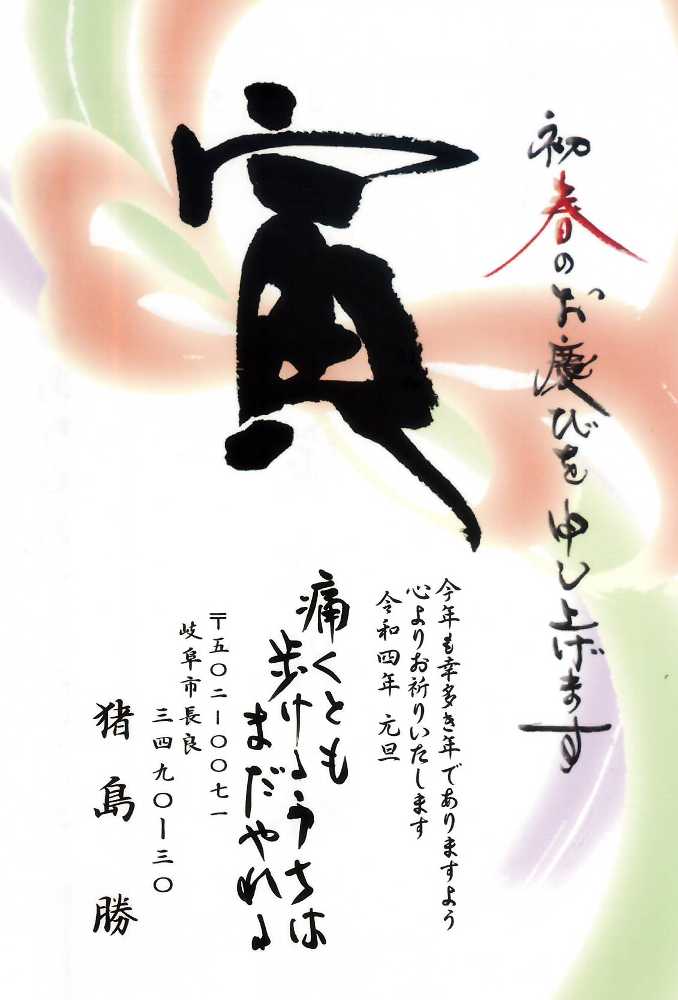 初春のお慶びを申し上げます
寅
今年も幸多き年でありますよう
心よりお祈りいたします
令和四年 元旦
痛くとも
歩けるうちは
まだやれる
〒五〇二ー〇〇七一
岐阜市長良
三四九〇ー三〇
猪島勝